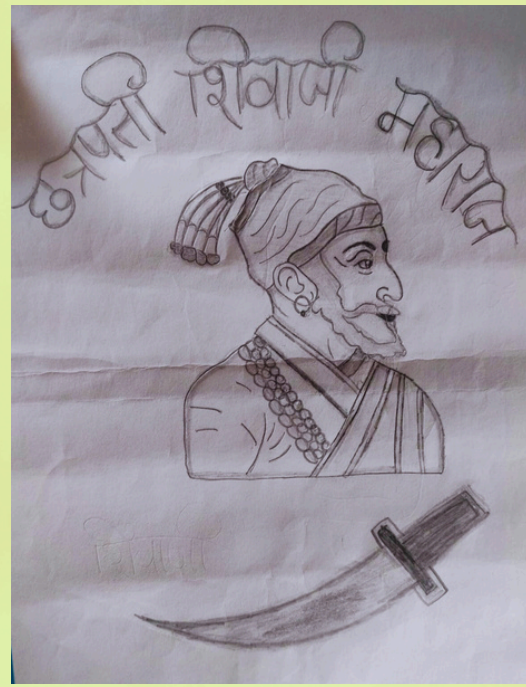 छत्रपती शिवाजी महाराज